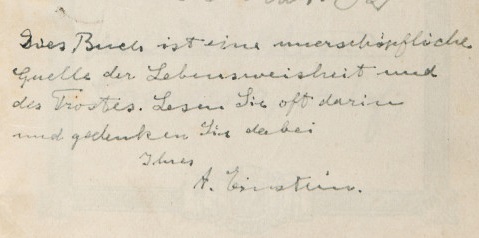 Dies Buch ist eine unerschöpfliche
Quelle der Lebensweisheit und
des Trostes. Lesen Sie oft darin
und gedenken Sie dabei
Ihres
A. Einstein.